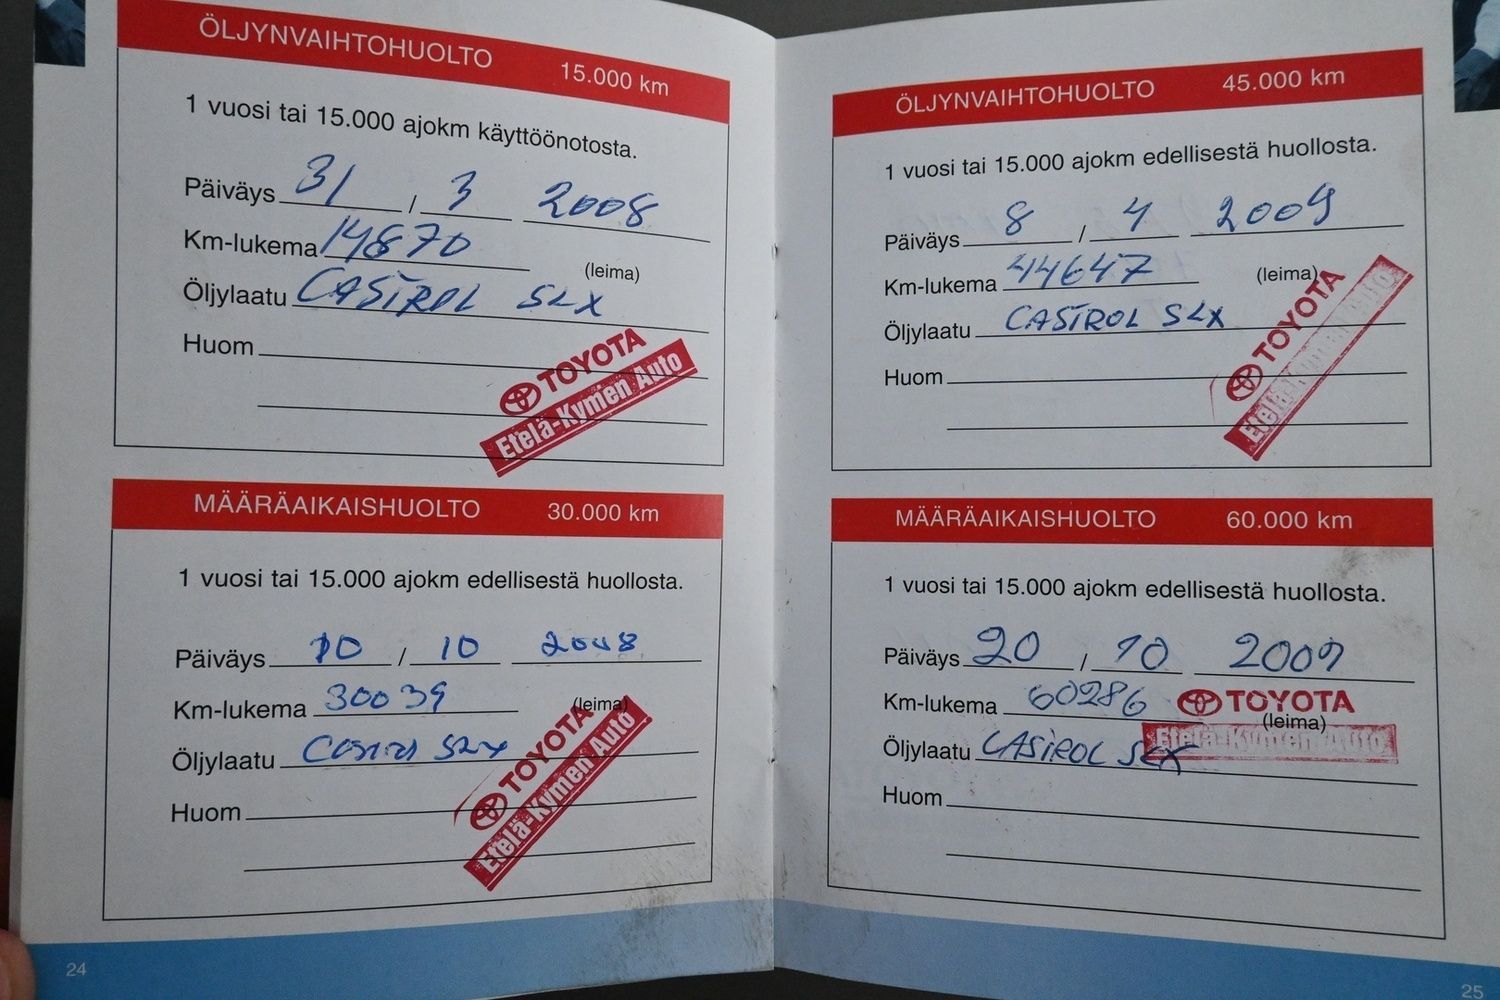 ÖLJYNVAIHTOHUOLTO 15.000 km
1 vuosi tai 15.000 ajokm käyttöönotosta.
Päiväys 31 / 3 2008
Km-lukema 14870
(leima)
Öljylaatu CASTROL SLX
Huom
TOYOTA
Etelä-Kymen Auto
MÄÄRÄAIKAISHUOLTO 30.000 km
1 vuosi tai 15.000 ajokm edellisestä huollosta.
Päiväys 10 / 10 2008
Km-lukema 30039
(leima)
Öljylaatu Castrol SLX
Huom
TOYOTA
Etelä-Kymen Auto
24
ÖLJYNVAIHTOHUOLTO 45.000 km
1 vuosi tai 15.000 ajokm edellisestä huollosta.
Päiväys 8 / 4 2009
Km-lukema 44647
(leima)
Öljylaatu CASTROL SLX
Huom
TOYOTA
Etelä-Kymen Auto
MÄÄRÄAIKAISHUOLTO 60.000 km
1 vuosi tai 15.000 ajokm edellisestä huollosta.
Päiväys 20 / 10 2009
Km-lukema 60286
TOYOTA
(leima)
Etelä-Kymen Auto
Öljylaatu CASTROL SLX
Huom
25